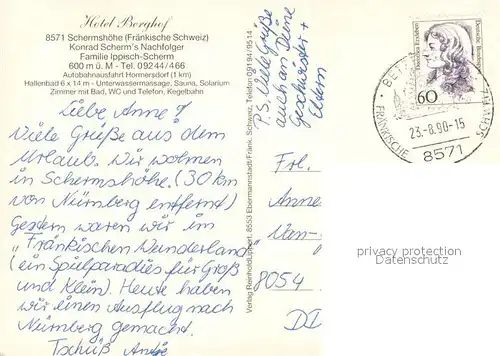 Hotel Berghof
8571 Schermshöhe (Fränkische Schweiz)
Konrad Scherm's Nachfolger
Familie Ippisch-Scherm
600 m ü. M - Tel. 09244/466
Autobahnausfahrt Hormersdorf (1 km)
Hallenbad 6 x 14 m - Unterwassermassage, Sauna, Solarium
Zimmer mit Bad, WC und Telefon, Kegelbahn
Liebe Anne!
Viele Grüße aus dem
Urlaub. Wir wohnen
in Schermshöhe. (30 km
von Nürnberg entfernt)
Gestern waren wir im
"Fränkischen Wunderland"
(ein Spielparadies für Groß
und Klein). Heute haben
wir einen Ausflug nach
Nürnberg gemacht.
Tschüß André
P.S. Viele Grüße
auch an Deine
Geschwister +
Eltern
Verlag Reinhold Lippert, 8553 Ebermannstadt/Fränk. Schweiz, Telefon 09194/9514
Deutsche Bundespost
60
FRÄNKISCHE SCHWEIZ
23.-8.90-15
8571
Frl.
Anne
Van-
8054
DD
privacy protection
Datenschutz